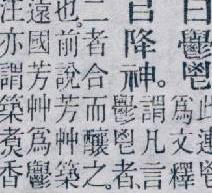 白鬱鬯
此連釋
爲文
官降神。
謂凡言
鬱鬯者、
二者合而釀之。
也。前說芳艸築
遠國芳艸爲鬱
汪亦謂築煑香